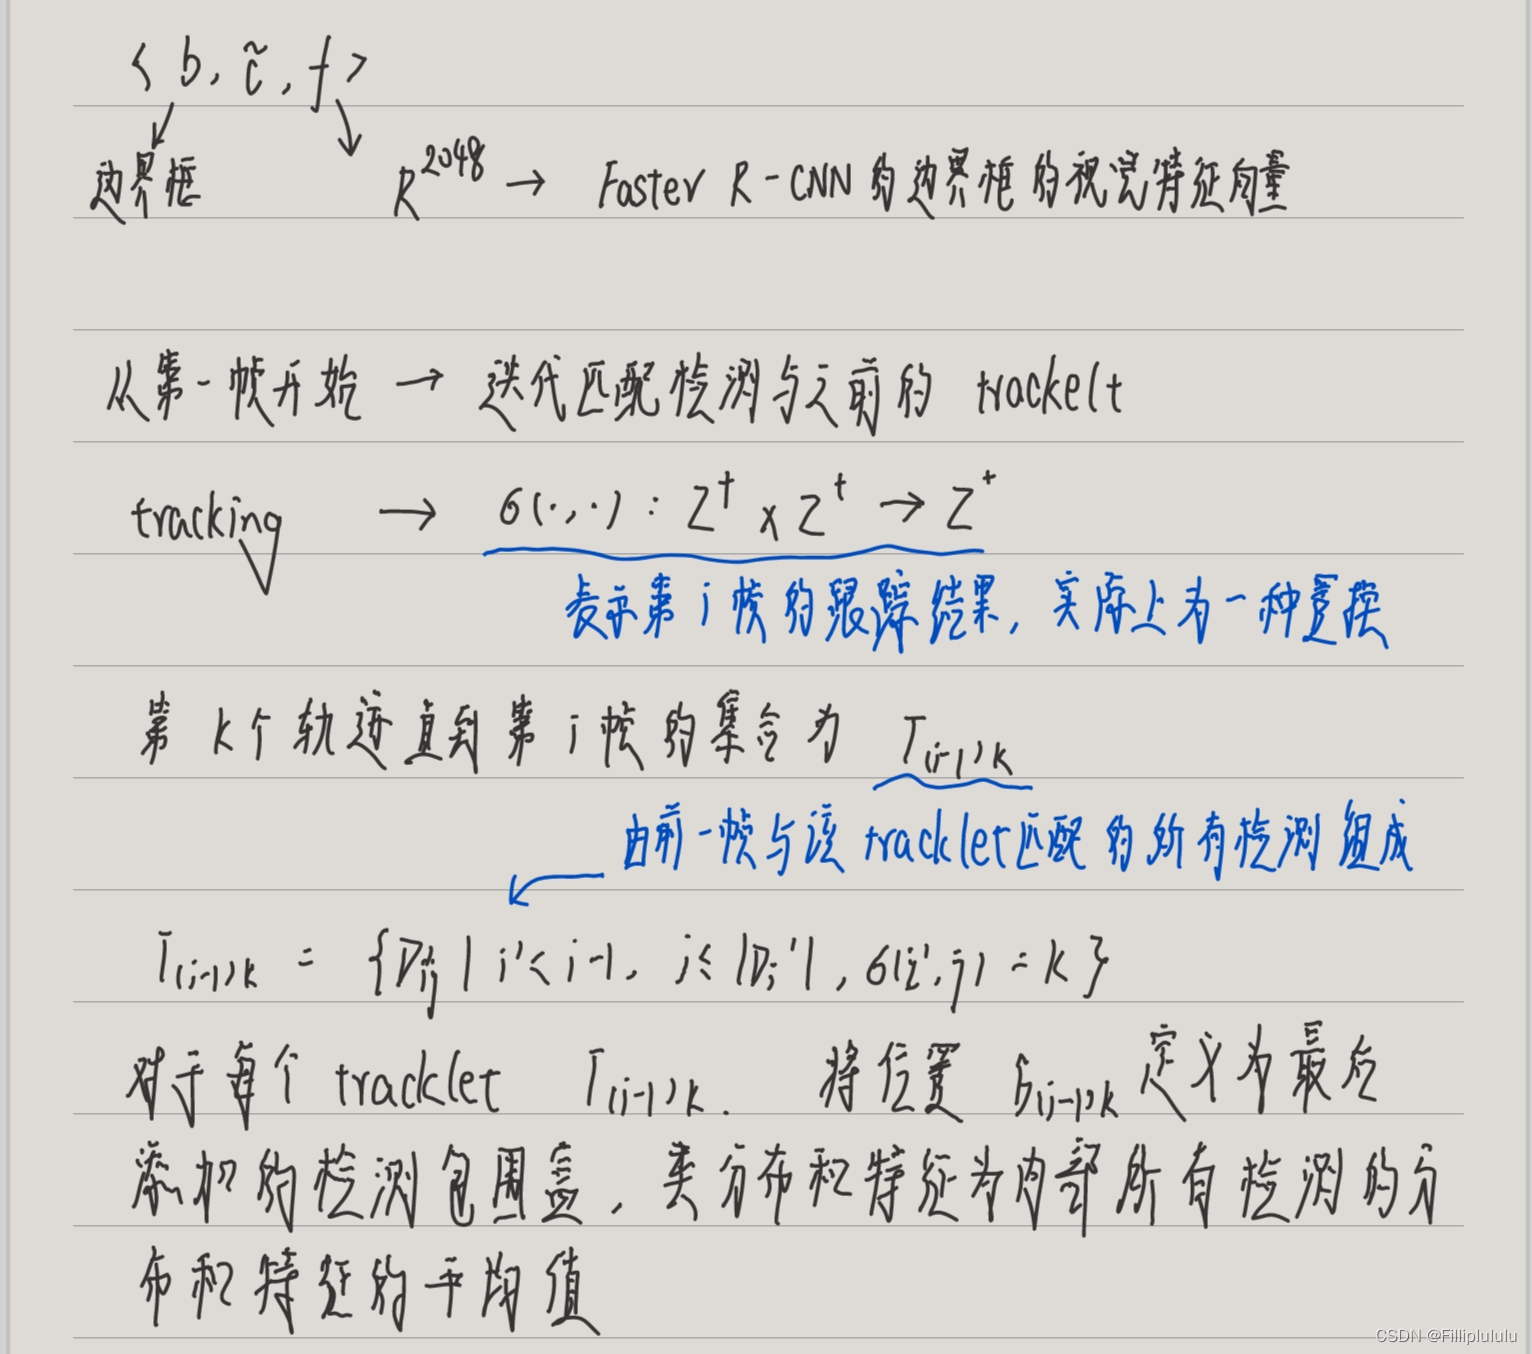 < b, c̃, f >
边界框 R^2048 → Faster R-CNN的边界框的视觉特征向量
从第一帧开始 → 迭代匹配检测与之前的 trackelt
tracking → 6(·,·) : Z^+ × Z^+ → Z^+
表示第 i 帧的跟踪结果, 实际上为一种置换
第 k个轨迹直到第 i 帧的集合为 T(i-1)k
由前一帧与该 tracklet匹配的所有检测组成
T(i-1)k = {Dij | i'< i-1, j≤ |Di'|, 6(i',j) = k }
对于每个 tracklet T(i-1)k. 将位置 b(i-1)k 定义为最后
添加的检测包围盒, 类分布和特征为内部所有检测的分
布和特征的平均值
CSDN @Filliplululu